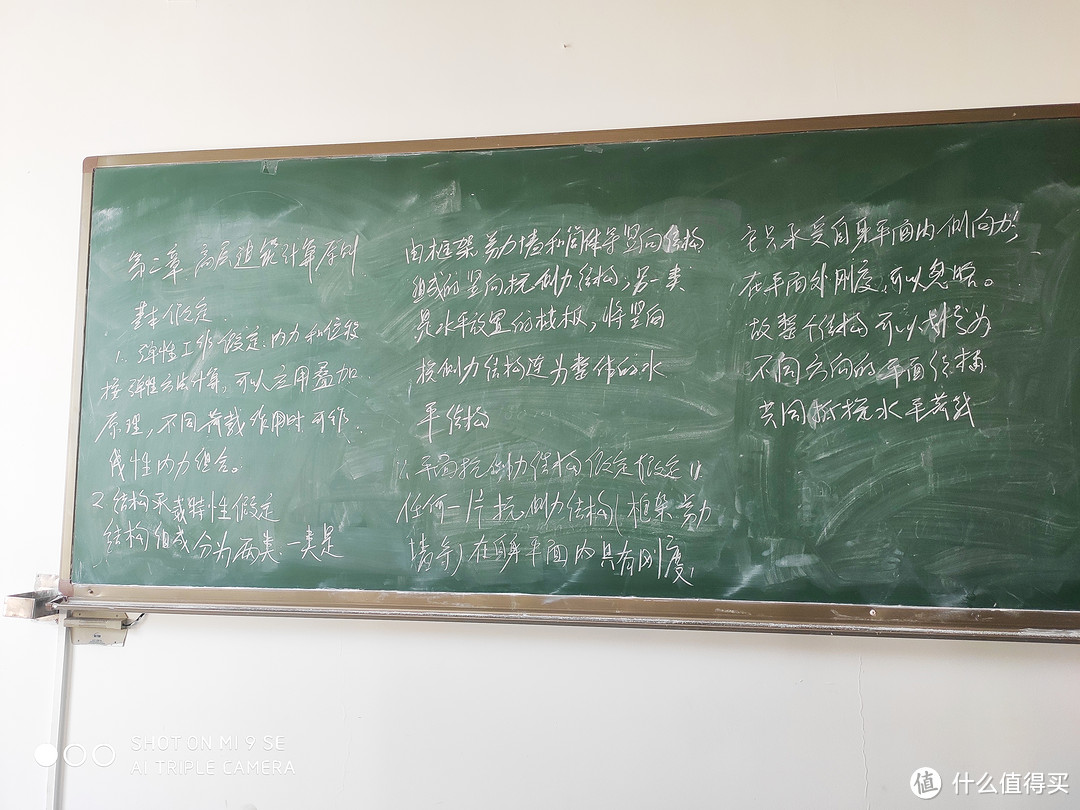 第二章 高层建筑计算原则
基本假定
1. 弹性工作假定：内力和位移
按弹性方法计算，可以应用叠加
原理，不同荷载作用时可作
线性内力组合。
2. 结构承载特性假定
结构组成分为两类：一类是
由框架 剪力墙和筒体等竖向结构
组成的竖向抗侧力结构；另一类
是水平放置的楼板，将竖向
抗侧力结构连为整体的水
平结构
平面抗侧力结构假定
任何一片抗侧力结构（框架剪力
墙等）在自身平面内具有刚度，
它只承受自身平面内侧向力，
在平面外刚度，可以忽略。
故整个结构可以划分为
不同方向的平面结构
共同抵抗水平荷载
SHOT ON MI 9 SE
AI TRIPLE CAMERA
值 什么值得买